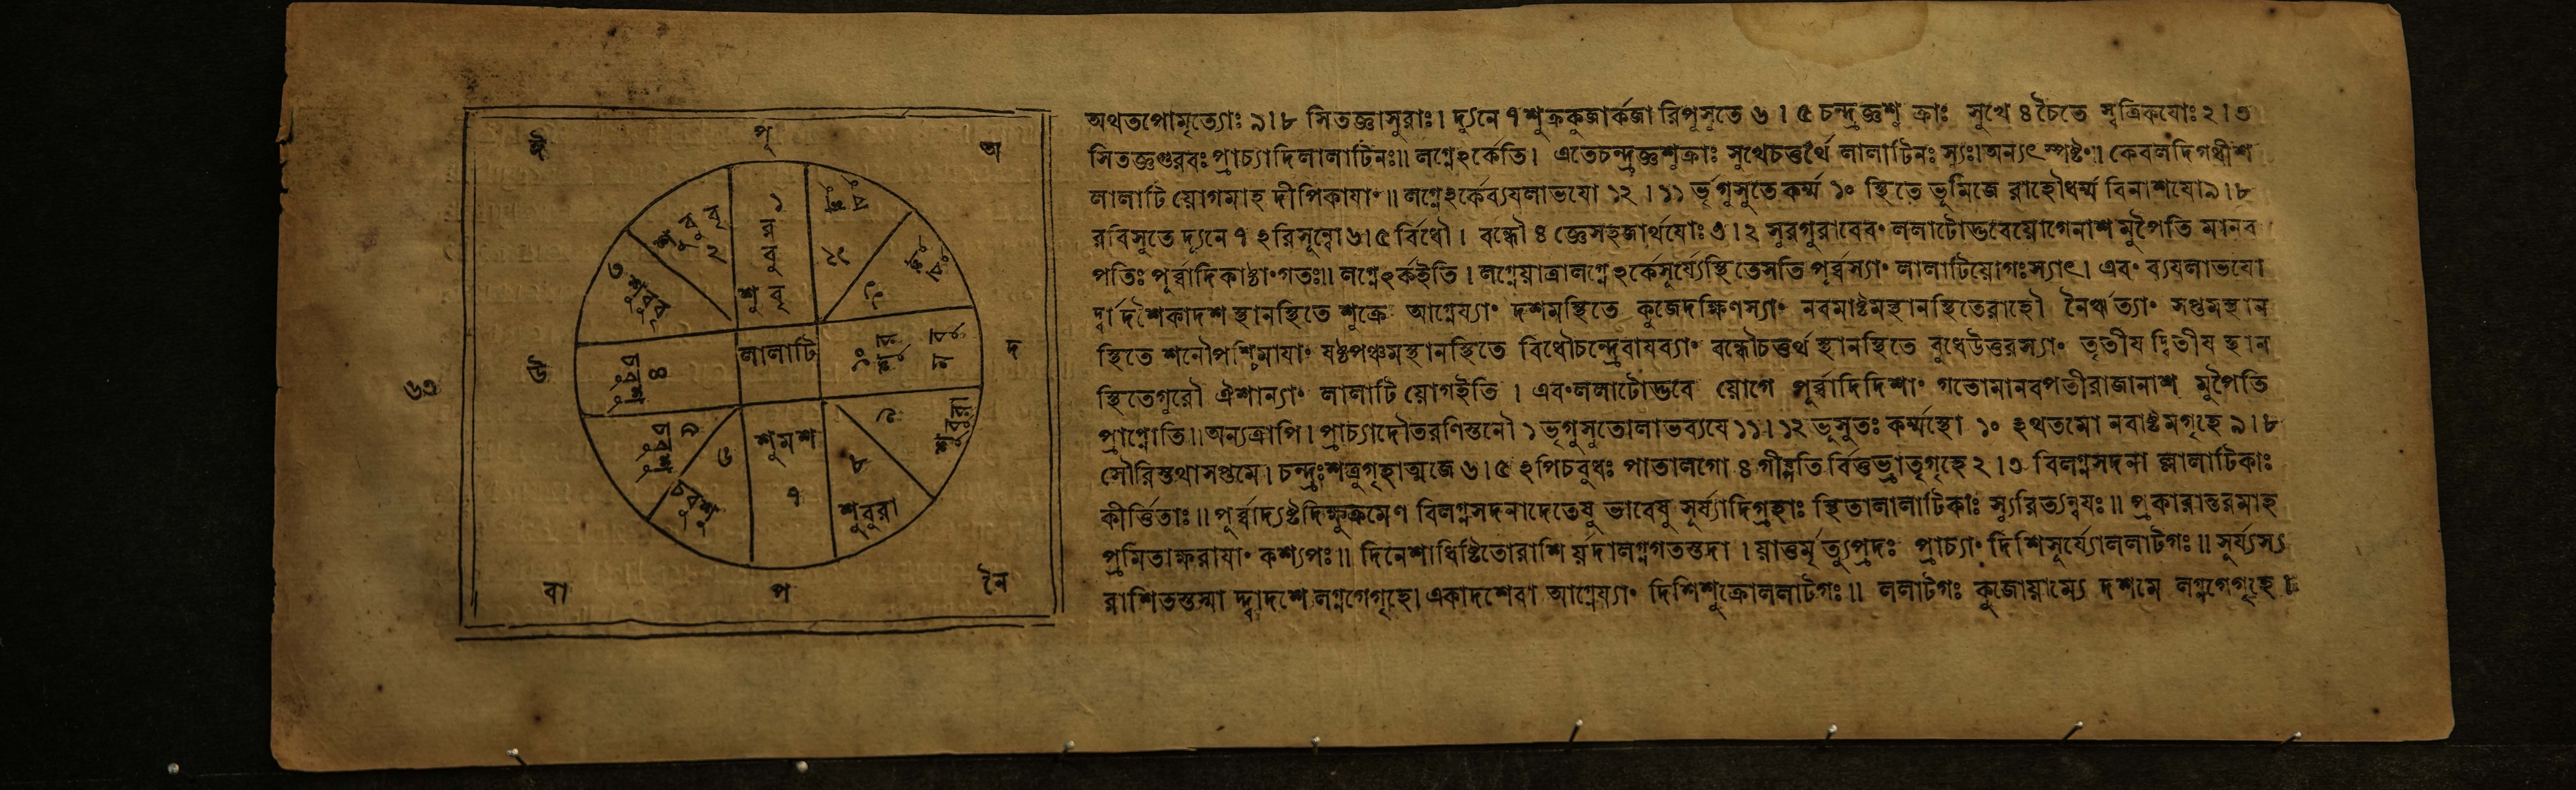 ঈ পূ অ
১ র বু শু বৃ
শু বু বৃ ২
৩ শু বু বৃ
লালাটি
উ
দ
৬৩
৪
১০
৯
৬
শু ম শ ৭
৮ শু বু রা
বা প নৈ
অথতপোমৃত্যোঃ ৯।৮ সিতজ্ঞাসুরাঃ। দ্যুনে ৭ শুক্রকুজার্কজা রিপুসুতে ৬।৫ চন্দ্রজ্ঞশু ক্রাঃ সুখে ৪ চৈতে স্বত্রিকযোঃ ২।৩
সিতজ্ঞগুরবঃ প্রাচ্যাদিলালাটিনঃ॥ লগ্নেঽর্কেতি। এতেচন্দ্রজ্ঞশুক্রাঃ সুখেচতুর্থে লালাটিনঃ স্যুঃ।অন্যৎ স্পষ্টং॥ কেবলদিগধীশ
লালাটি য়োগমাহ দীপিকাযাং॥ লগ্নেঽর্কেব্যযলাভযো ১২।১১ র্ভৃগুসুতে কর্ম্ম ১০ স্থিতে ভূমিজে রাহৌধর্ম্ম বিনাশযো৯।৮
রবিসুতে দ্যূনে ৭ ঽরিসূন্বো৬।৫ র্বিধৌ। বন্ধৌ ৪ জ্ঞেসহজার্থযোঃ ৩।২ সুরগুরাবেবং ললাটোদ্ভবেয়োগেনাশ মুপৈতি মানব
পতিঃ পূর্ব্বাদিকাষ্ঠাংগতঃ॥ লগ্নেঽর্কইতি। লগ্নেয়াত্রালগ্নেঽর্কেসূর্য্যেস্থিতেসতি পূর্ব্বস্যাং লালাটিয়োগঃস্যাৎ। এবং ব্যযলাভযো
র্দ্বাদশৈকাদশ স্থানস্থিতে শুক্রে আগ্নেয্যাং দশমস্থিতে কুজেদক্ষিণস্যাং নবমাষ্টমস্থানস্থিতেরাহৌ নৈঋত্যাং সপ্তমস্থান
স্থিতে শনৌপশ্চিমাযাং ষষ্ঠপঞ্চমস্থানস্থিতে বিধৌচন্দ্রেবাযব্যাং বন্ধৌচতুর্থ স্থানস্থিতে বুধেউত্তরস্যাং তৃতীয দ্বিতীয স্থান
স্থিতেগুরৌ ঐশান্যাং লালাটি য়োগইতি। এবংললাটোদ্ভবে য়োগে পূর্ব্বাদিদিশাং গতোমানবপতীরাজানাশ মুপৈতি
প্রাপ্নোতি॥অন্যত্রাপি। প্রাচ্যাদৌতরণিস্তনৌ ১ ভৃগুসুতোলাভব্যযে ১১।১২ ভূসুতঃ কর্ম্মস্থো ১০ ঽথতমো নবাষ্টমগৃহে ৯।৮
সৌরিস্তথাসপ্তমে। চন্দ্রঃশত্রুগৃহাত্মজে ৬।৫ ঽপিচবুধঃ পাতালগো ৪ গীষ্পতি র্বিত্তভ্রাতৃগৃহে ২।৩ বিলগ্নসদনা ল্লালাটিকাঃ
কীর্ত্তিতাঃ॥ পূর্ব্বাদ্যষ্টদিক্ষুক্রমেণ বিলগ্নসদনাদেতেষু ভাবেষু সূর্য্যাদিগ্রহাঃ স্থিতালালাটিকাঃ স্যুরিত্যন্বযঃ॥ প্রকারান্তরমাহ
প্রমিতাক্ষরাযাং কশ্যপঃ॥ দিনেশাধিষ্টিতোরাশি র্য়দালগ্নগতস্তদা। য়াত্তুর্মৃত্যুপ্রদঃ প্রাচ্যাং দিশিসূর্য্যোললাটগঃ॥ সূর্য্যস্য
রাশিতস্তস্মা দ্দ্বাদশে লগ্নগেগৃহে। একাদশেবা আগ্নেয্যাং দিশিশুক্রোললাটগঃ॥ ললাটগঃ কুজোয়াম্যে দশমে লগ্নগেগৃহে।